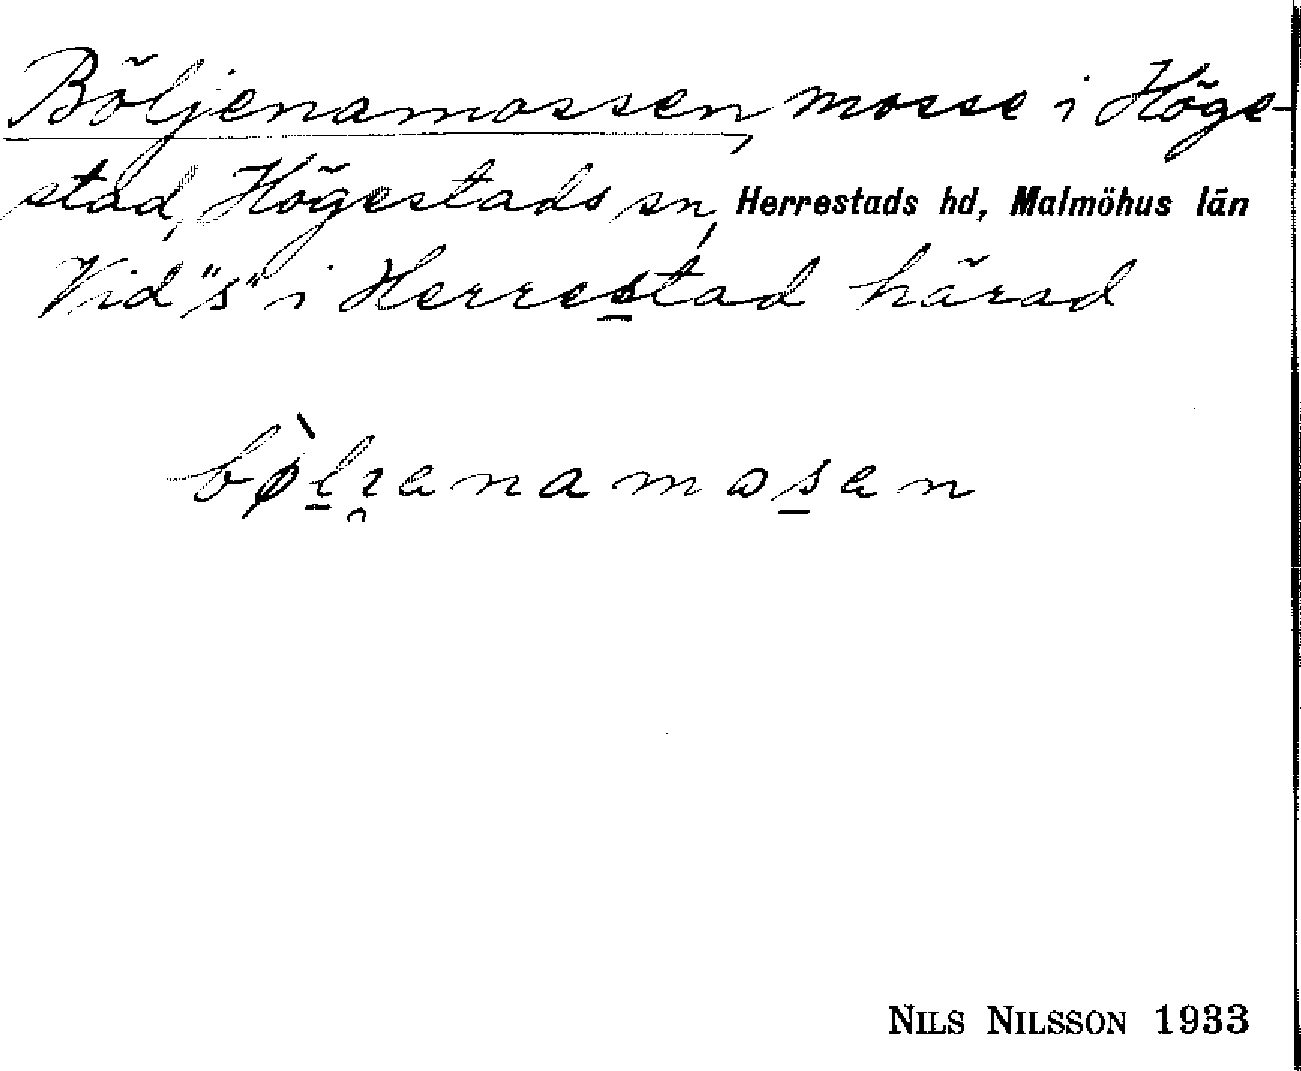 Böljenamossen, mosse i Höge-
stad, Högestads sn, Herrestads hd, Malmöhus län
Vid "s" i Herrestad härad
bø̀lɪ̯enamosen
NILS NILSSON 1933